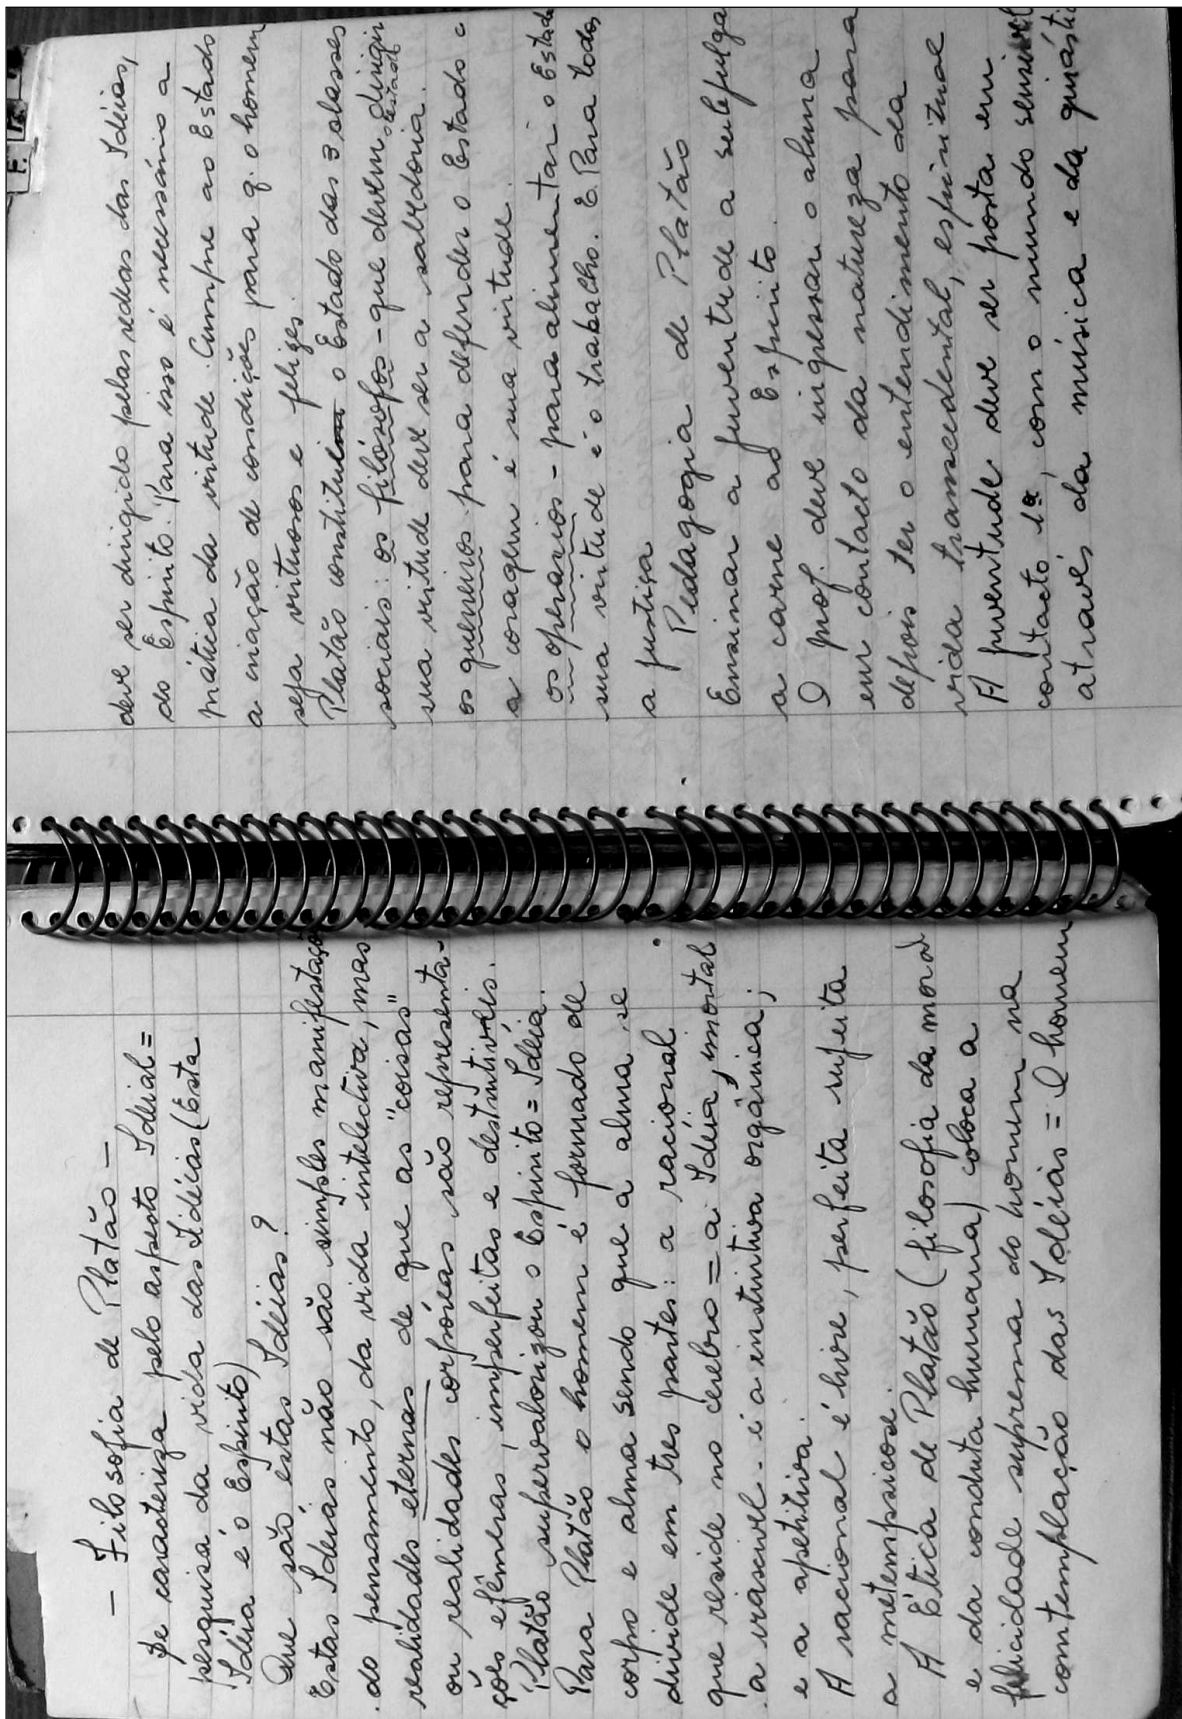 - Filosofia de Platão -
Se carateriza pelo aspesto Ideial =
pesquisa da vida das Idéias (Esta
Idéia é o Espirito)
Que são estas Idéias?
Estas Idéias não são simples manifestação
do pensamento, da vida intelectiva, mas
realidades eternas de que as "coisas"
ou realidades corpóreas são representa-
ções efêmeras, imperfeitas e destrutiveis.
Platão supervalorizou o Espirito = Idéia.
Para Platão o homem é formado de
corpo e alma sendo que a alma se
divide em tres partes: a racional
que reside no cerebro = a Idéia, imortal
a irascivel - é a instintiva orgânica;
e a apetitiva.
A racional é livre, perfeita sujeita
a metempsicose.
A Ética de Platão (filosofia da moral
e da conduta humana) coloca a
felicidade suprema do homem na
comtemplação das Idéias = O homem
deve ser dirigido pelas rédeas das Idéias,
do Espirito. Para isso é necessário a
prática da virtude. Cumpre ao Estado
a criação de condições para q. o homem
seja virtuosos e felizes.
Platão constitui o Estado das 3 classes
sociais: os filósofos - que devem dirigir
o Estado
sua virtude deve ser a sabedoria.
os guerreiros para defender o Estado e
a coragem é sua virtude.
os operarios - para alimentar o Estado
sua virtude é o trabalho. E Para todos
a justiça
Pedagogia de Platão
Ensinar a juventude a subjulga
a carne ao Espirito.
O prof. deve ingressar o aluno
em contacto da natureza para
depois ter o entendimento da
vida transcedental, espiritual
A juventude deve ser posta em
contacto 1º, com o mundo sensivel
através da música e da ginástic